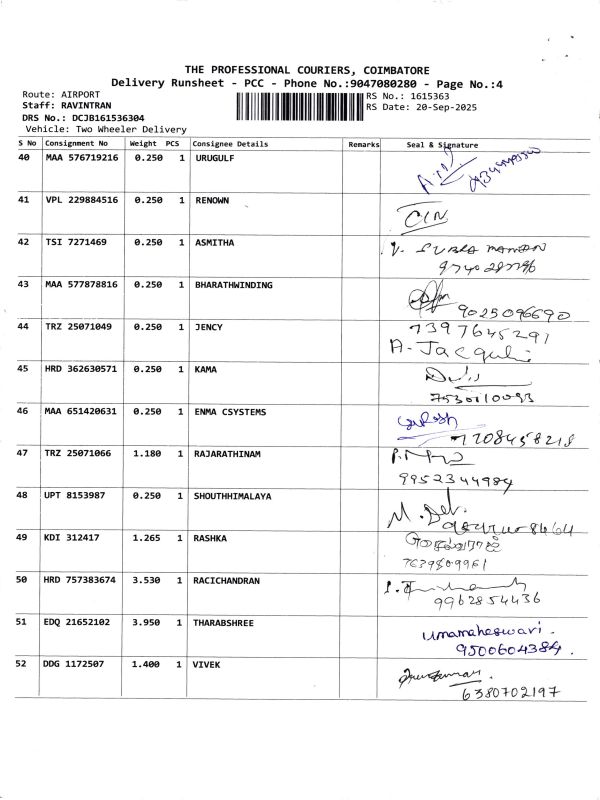 THE PROFESSIONAL COURIERS, COIMBATORE
Delivery Runsheet - PCC - Phone No.:9047080280 - Page No.:4
Route: AIRPORT RS No.: 1615363
Staff: RAVINTRAN RS Date: 20-Sep-2025
DRS No.: DCJB161536304
Vehicle: Two Wheeler Delivery
S No Consignment No Weight PCS Consignee Details Remarks Seal & Signature
40 MAA 576719216 0.250 1 URUGULF
41 VPL 229884516 0.250 1 RENOWN
42 TSI 7271469 0.250 1 ASMITHA
43 MAA 577878816 0.250 1 BHARATHWINDING
9025096690
44 TRZ 25071049 0.250 1 JENCY 7397645291
45 HRD 362630571 0.250 1 KAMA
7530110093
46 MAA 651420631 0.250 1 ENMA CSYSTEMS
7708458218
47 TRZ 25071066 1.180 1 RAJARATHINAM
9952344984
48 UPT 8153987 0.250 1 SHOUTHHIMALAYA
49 KDI 312417 1.265 1 RASHKA
7639809961
50 HRD 757383674 3.530 1 RACICHANDRAN
9962854436
51 EDQ 21652102 3.950 1 THARABSHREE Umamaheswari.
9500604384.
52 DDG 1172507 1.400 1 VIVEK
6380702197